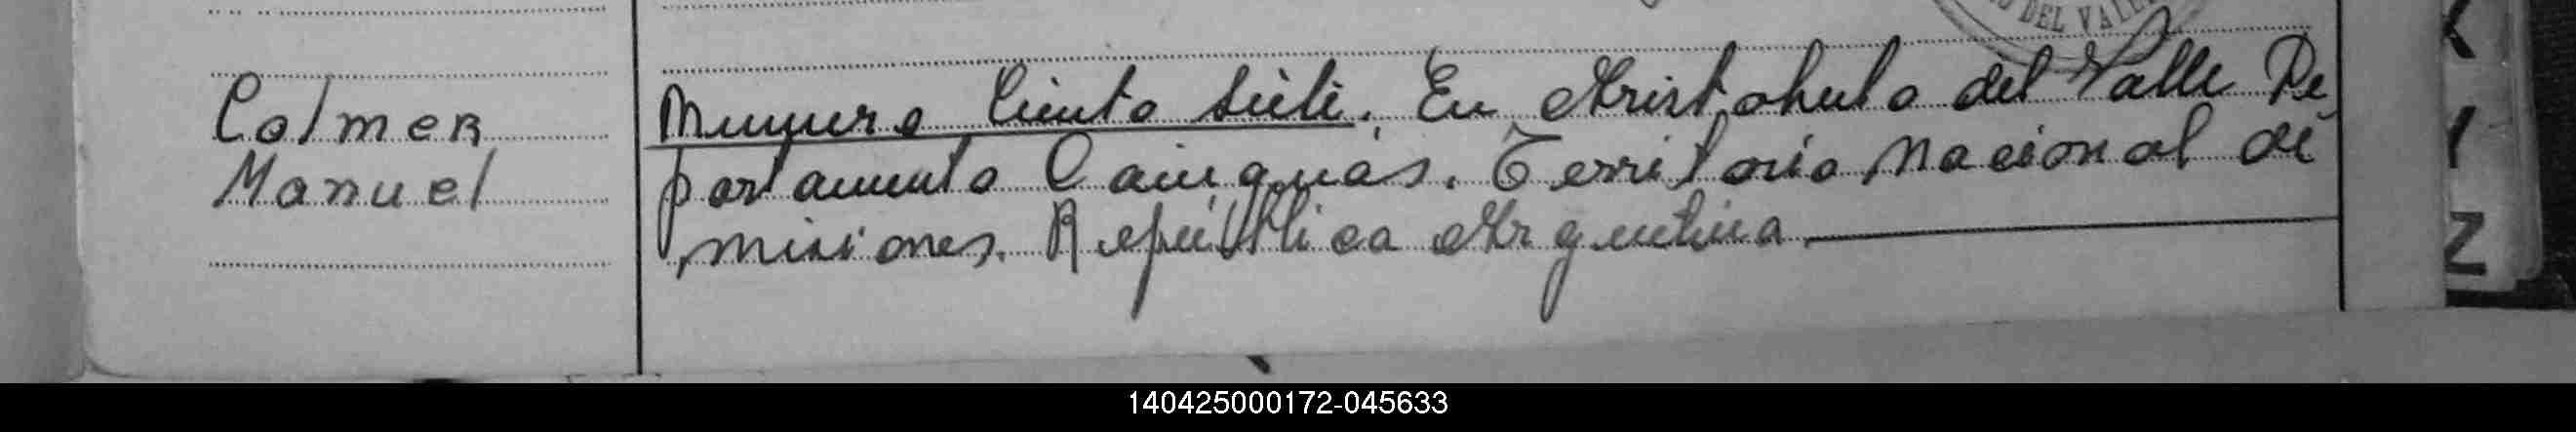 DEL VALLE
Colmer
Manuel
Numero Ciento Siete. En Aristobulo del Valle De
partamento Cainguás. Territorio Nacional de
Misiones. República Argentina
K
Y
Z
140425000172-045633